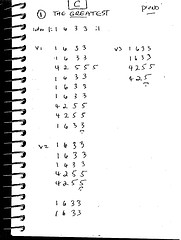 C
① THE GREATEST
PIANO
Intro : 1 6 3 3 :||
V1 1 6 3 3
1 6 3 3
4 2 5 5 5
1 6 3 3
1 6 3 3
1 6 3 3
4 2 5 5
4 2 5 5
1 6 3 3
1 6 3 3
V2 1 6 3 3
1 6 3 3
1 6 3 3
4 2 5 5
4 2 5 5
1 6 3 3
1 6 3 3
V3 1 6 3 3
1 6 3 3
4 2 5 5
4 2 5